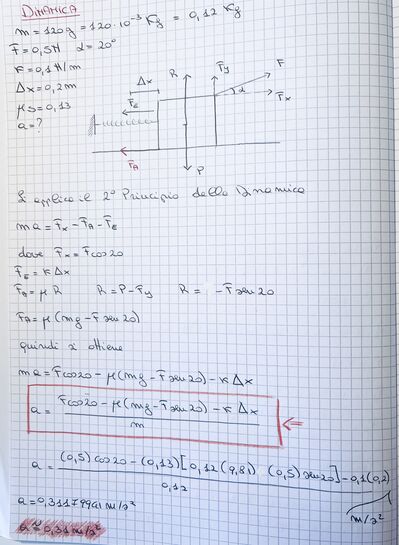 DINAMICA
m = 120g = 120·10⁻³ Kg = 0,12 Kg
F = 0,5N α = 20°
K = 0,1 N/m
Δx = 0,2m
μs = 0,13
a = ?
Δx R Fy F
FE α Fx
FA P
Si applica il 2° Principio della Dinamica
ma = Fx - FA - FE
dove Fx = F cos20
FE = K Δx
FA = μ R R = P - Fy R = - F sen 20
FA = μ (mg - F sen 20)
quindi si ottiene
ma = F cos20 - μ (mg - F sen 20) - K Δx
a = F cos20 - μ (mg - F sen 20) - K Δx
m
a = (0,5) cos20 - (0,13) [0,12 (9,81) (0,5) sen 20] - 0,1 (0,2)
0,12
m/s²
a = 0,31179991 m/s²
a ≈ 0,31 m/s²